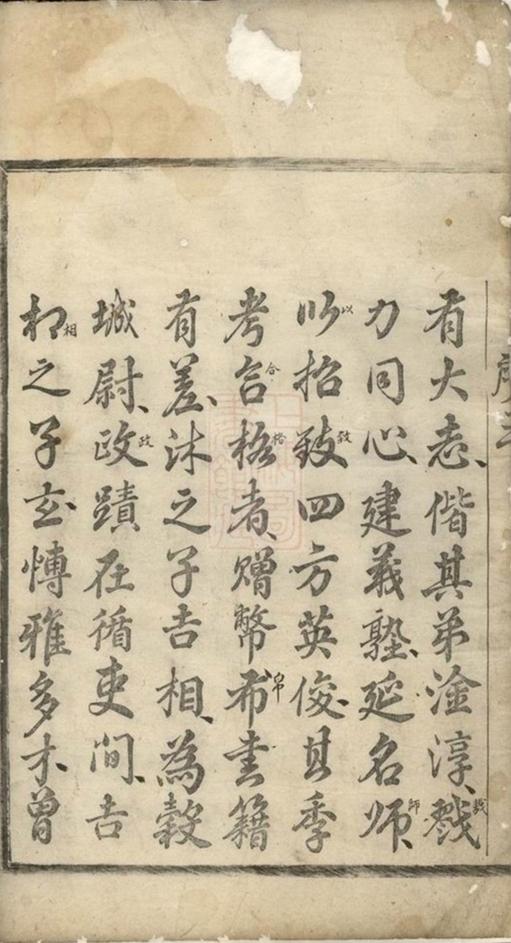 有大志偕其弟淦淳戮
力同心建義塾延名师
以招致四方英俊其季
考合格者赠幣布書籍
有差沐之子吉相為穀
城尉政蹟在循吏间吉
相之子玄慱雅多才曾